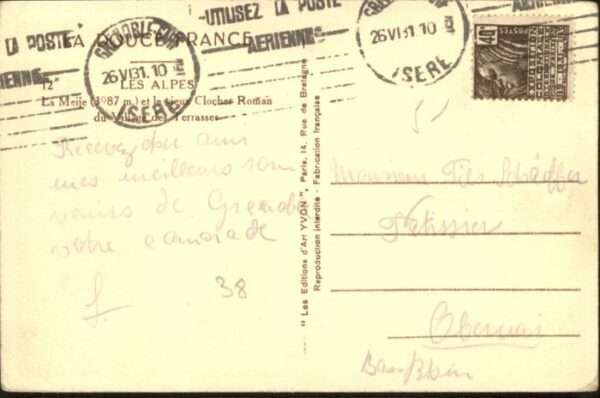 -UTILISEZ LA POSTE
AÉRIENNE
LA POSTE
AÉRIENNE
AÉRIENNE
GRENOBLE
26 VI 31.10
ISÈRE
GRENOBLE
26 VI 31.10
ISÈRE
POSTES
40c
LA DOUCE FRANCE
12 LES ALPES
La Meije (3987 m.) et le vieux Clocher Roman
du Village des Terrasses
Recevez cher ami
mes meilleurs sou
venirs de Grenoble
votre camarade
38
"Les Editions d'Art YVON", Paris, 14, Rue de Bretagne
Reproduction interdite - Fabrication française
Monsieur Fils Schäffer
Patissier
Obernai
Bas-Rhin